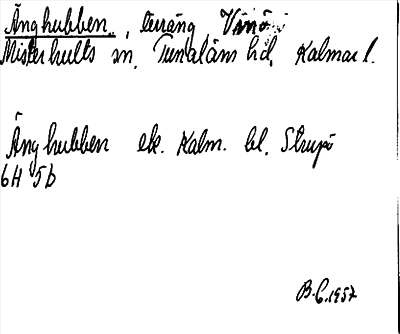 Änghubben, terräng, Vinö
Misterhults sn, Tunaläns hd, Kalmar l.
Änghubben ek. Kalm. bl. Strupö
6H 5b
B.C. 1957